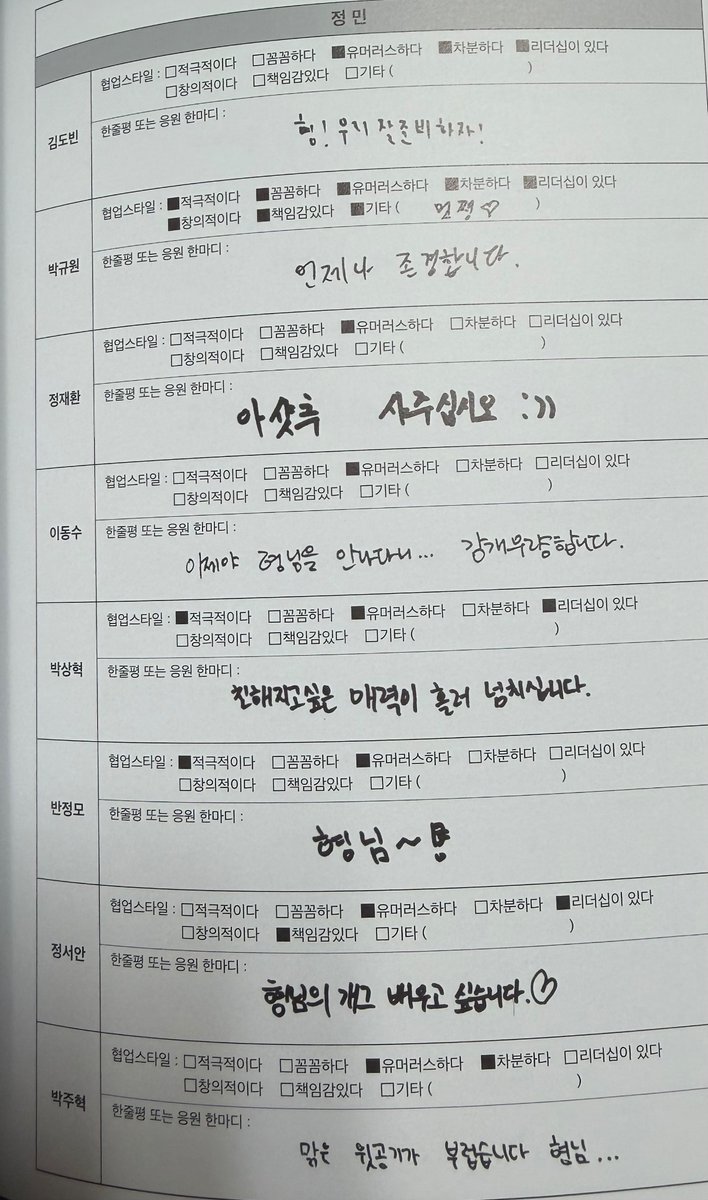 정 민
김도빈
협업스타일 : □적극적이다 □꼼꼼하다 ■유머러스하다 ■차분하다 ■리더십이 있다
□창의적이다 □책임감있다 □기타 ( )
한줄평 또는 응원 한마디 :
형! 우리 잘준비하자!
박규원
협업스타일 : ■적극적이다 ■꼼꼼하다 ■유머러스하다 ■차분하다 ■리더십이 있다
■창의적이다 ■책임감있다 ■기타 ( ♡ )
한줄평 또는 응원 한마디 :
언제나 존경합니다.
정재환
협업스타일 : □적극적이다 □꼼꼼하다 ■유머러스하다 □차분하다 □리더십이 있다
□창의적이다 □책임감있다 □기타 ( )
한줄평 또는 응원 한마디 :
아샷추 사주십시오 :))
이동수
협업스타일 : □적극적이다 □꼼꼼하다 ■유머러스하다 □차분하다 □리더십이 있다
□창의적이다 □책임감있다 □기타 ( )
한줄평 또는 응원 한마디 :
이제야 형님을 만나다니... 감개무량합니다.
박상혁
협업스타일 : ■적극적이다 □꼼꼼하다 ■유머러스하다 □차분하다 ■리더십이 있다
□창의적이다 □책임감있다 □기타 ( )
한줄평 또는 응원 한마디 :
친해지고싶은 매력이 흘러 넘치십니다.
반정모
협업스타일 : ■적극적이다 □꼼꼼하다 ■유머러스하다 □차분하다 □리더십이 있다
□창의적이다 □책임감있다 □기타 ( )
한줄평 또는 응원 한마디 :
형님~
정서안
협업스타일 : □적극적이다 □꼼꼼하다 ■유머러스하다 □차분하다 ■리더십이 있다
□창의적이다 ■책임감있다 □기타 ( )
한줄평 또는 응원 한마디 :
형님의 개그 배우고 싶습니다.♡
박주혁
협업스타일 : □적극적이다 □꼼꼼하다 ■유머러스하다 ■차분하다 □리더십이 있다
□창의적이다 □책임감있다 □기타 ( )
한줄평 또는 응원 한마디 :
맑은 윗공기가 부럽습니다 형님...